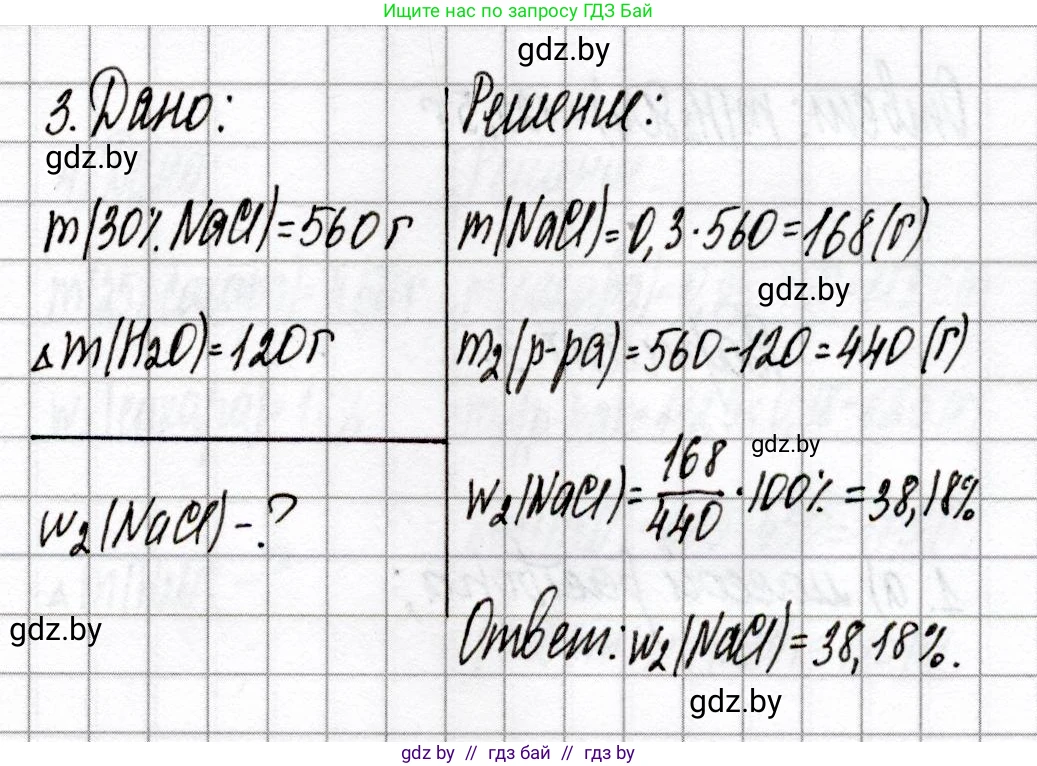 Ищите нас по запросу ГДЗ Бай
gdz.by
3. Дано:
gdz.by
m(30% NaCl)=560 г
Δm(H₂O)=120 г
w₂(NaCl) - ?
gdz.by
Решение:
m(NaCl)=0,3·560=168(г)
gdz.by
m₂(р-ра)=560-120=440(г)
gdz.by
w₂(NaCl)=168/440·100%=38,18%
Ответ: w₂(NaCl)=38,18%.
gdz.by
gdz by // гдз бай // гдз by